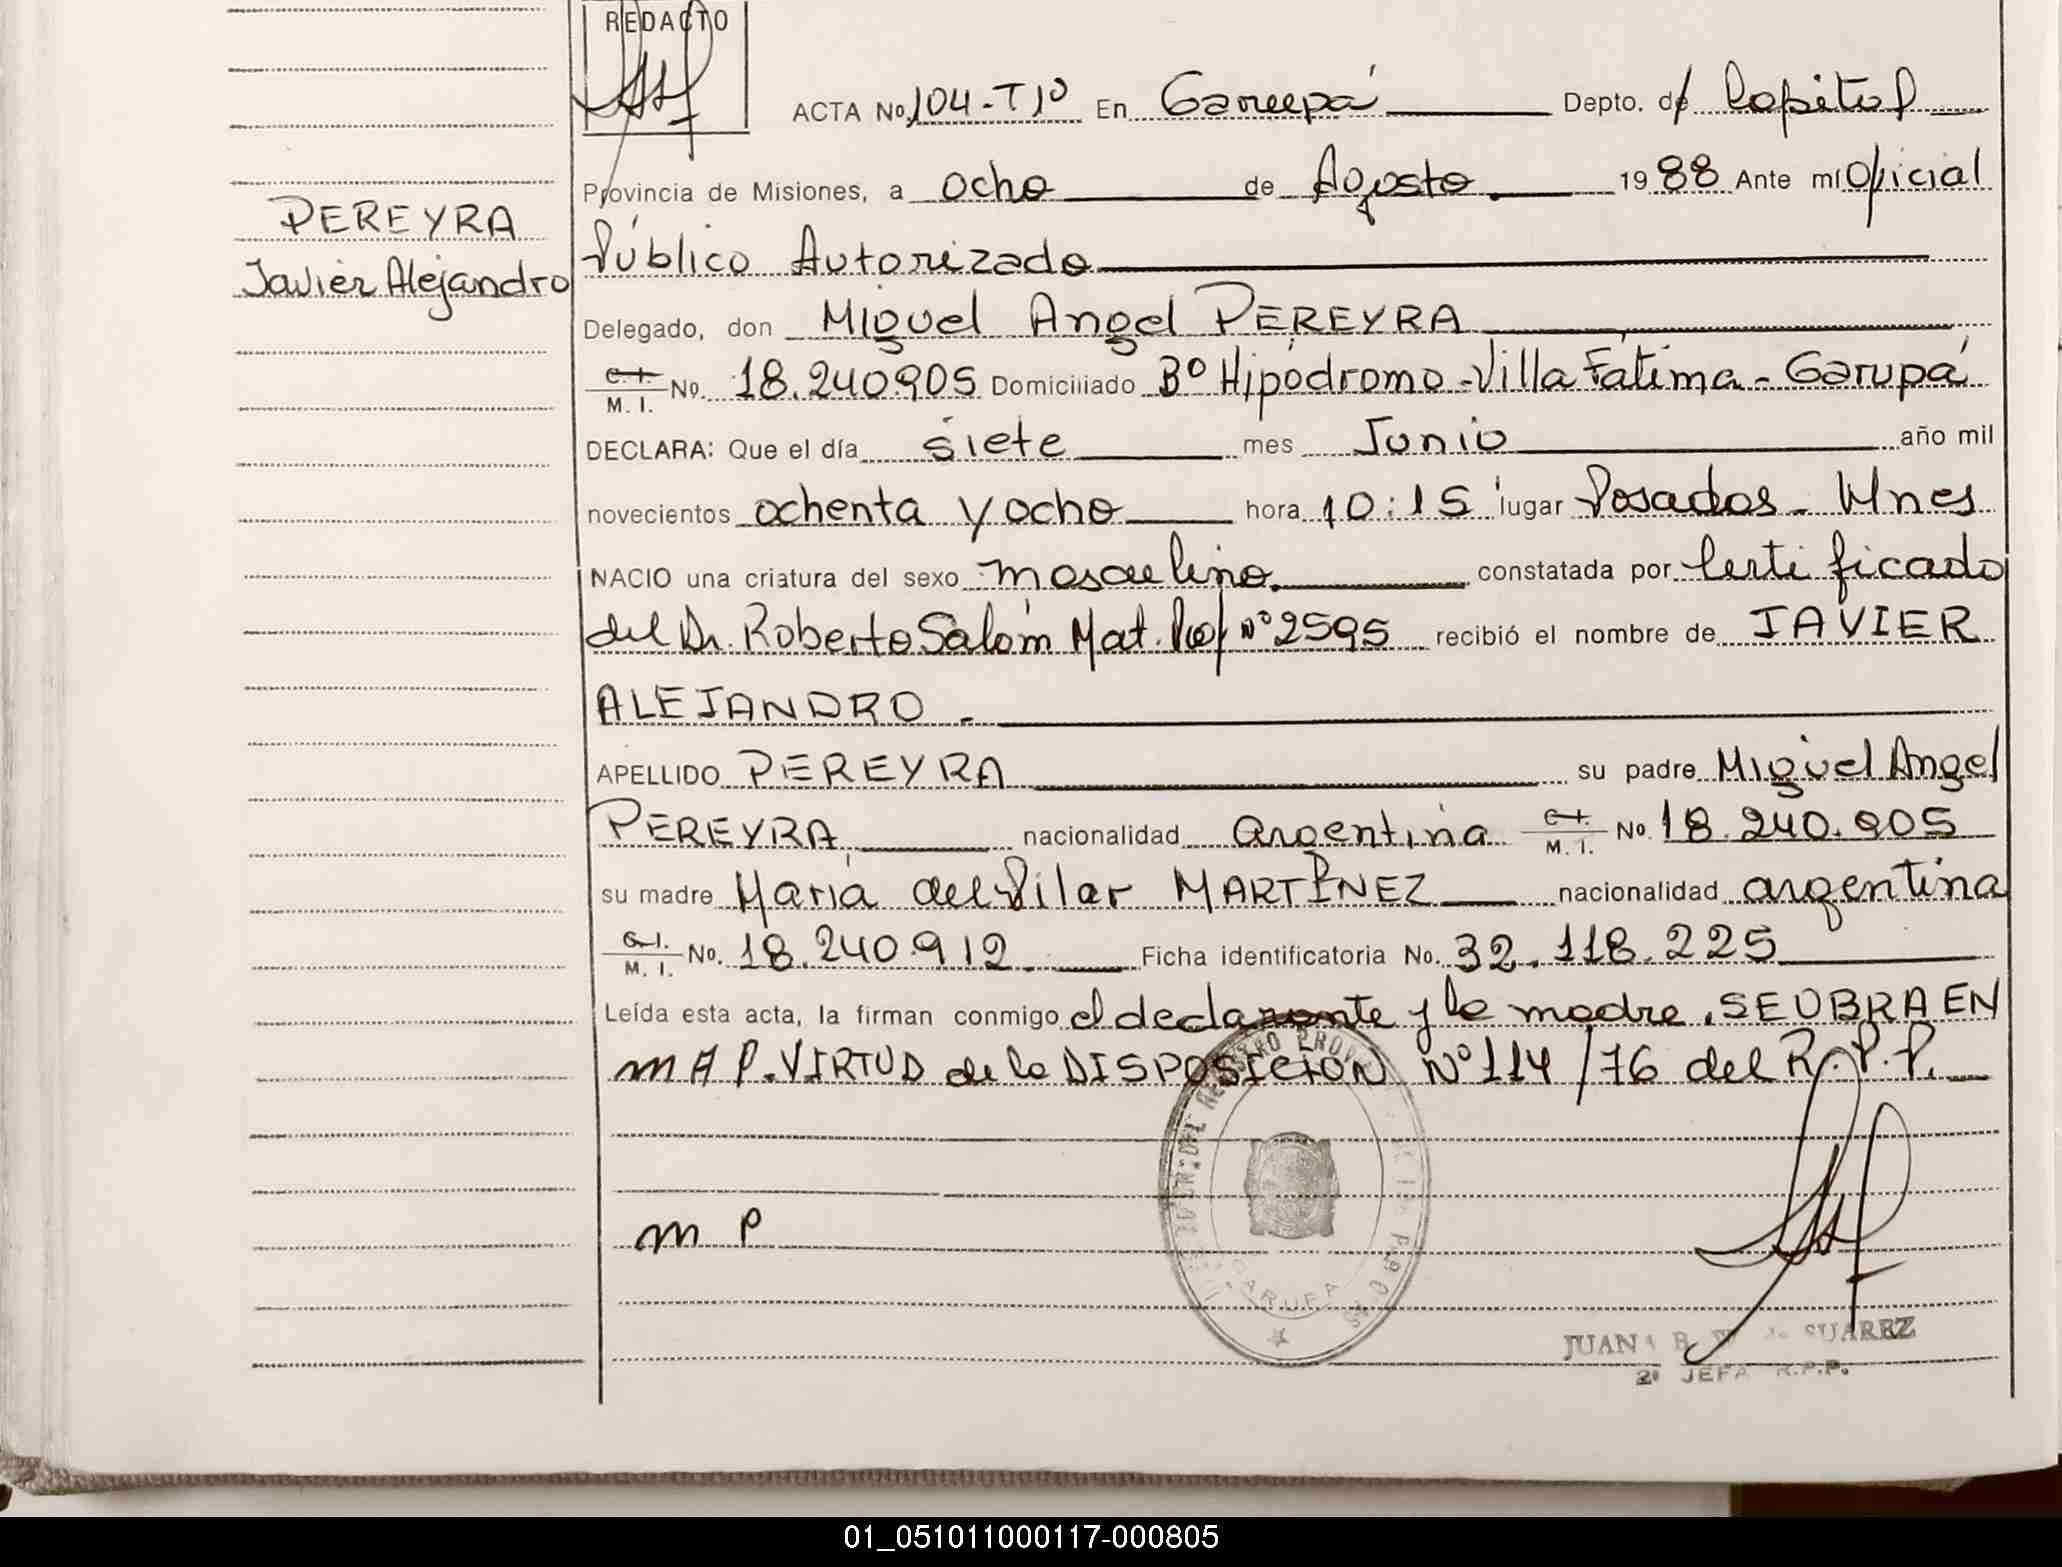 REDACTO
ACTA No. 104-Tº1º En Garupá Depto. de Capital
Provincia de Misiones, a ocho de Agosto. 1988 Ante mí Oficial
PEREYRA
Público Autorizado
Javier Alejandro
Delegado, don Miguel Angel PEREYRA
C.I. M.I. No. 18.240.905 Domiciliado Bº Hipódromo-Villa Fátima-Garupá
DECLARA: Que el día siete mes Junio año mil
novecientos ochenta y ocho hora 10:15 lugar Posadas- Mnes
NACIO una criatura del sexo masculino. constatada por Certificado
del Dr. Roberto Salom Mat. Prof Nº 2595 recibió el nombre de JAVIER
ALEJANDRO.
APELLIDO PEREYRA su padre Miguel Angel
PEREYRA nacionalidad argentina C.I. M.I. No. 18.240.905
su madre María del Pilar MARTÍNEZ nacionalidad argentina
C.I. M.I. No. 18.240.912 Ficha identificatoria No. 32.118.225
Leída esta acta, la firman conmigo el declarante y la madre. SE OBRA EN
m A P. VIRTUD de la DISPOSICIÓN Nº 114/76 del R.P.P.
m P
GARUPA
JUANA B. de SUAREZ
2º JEFA R.P.P.
01_051011000117-000805